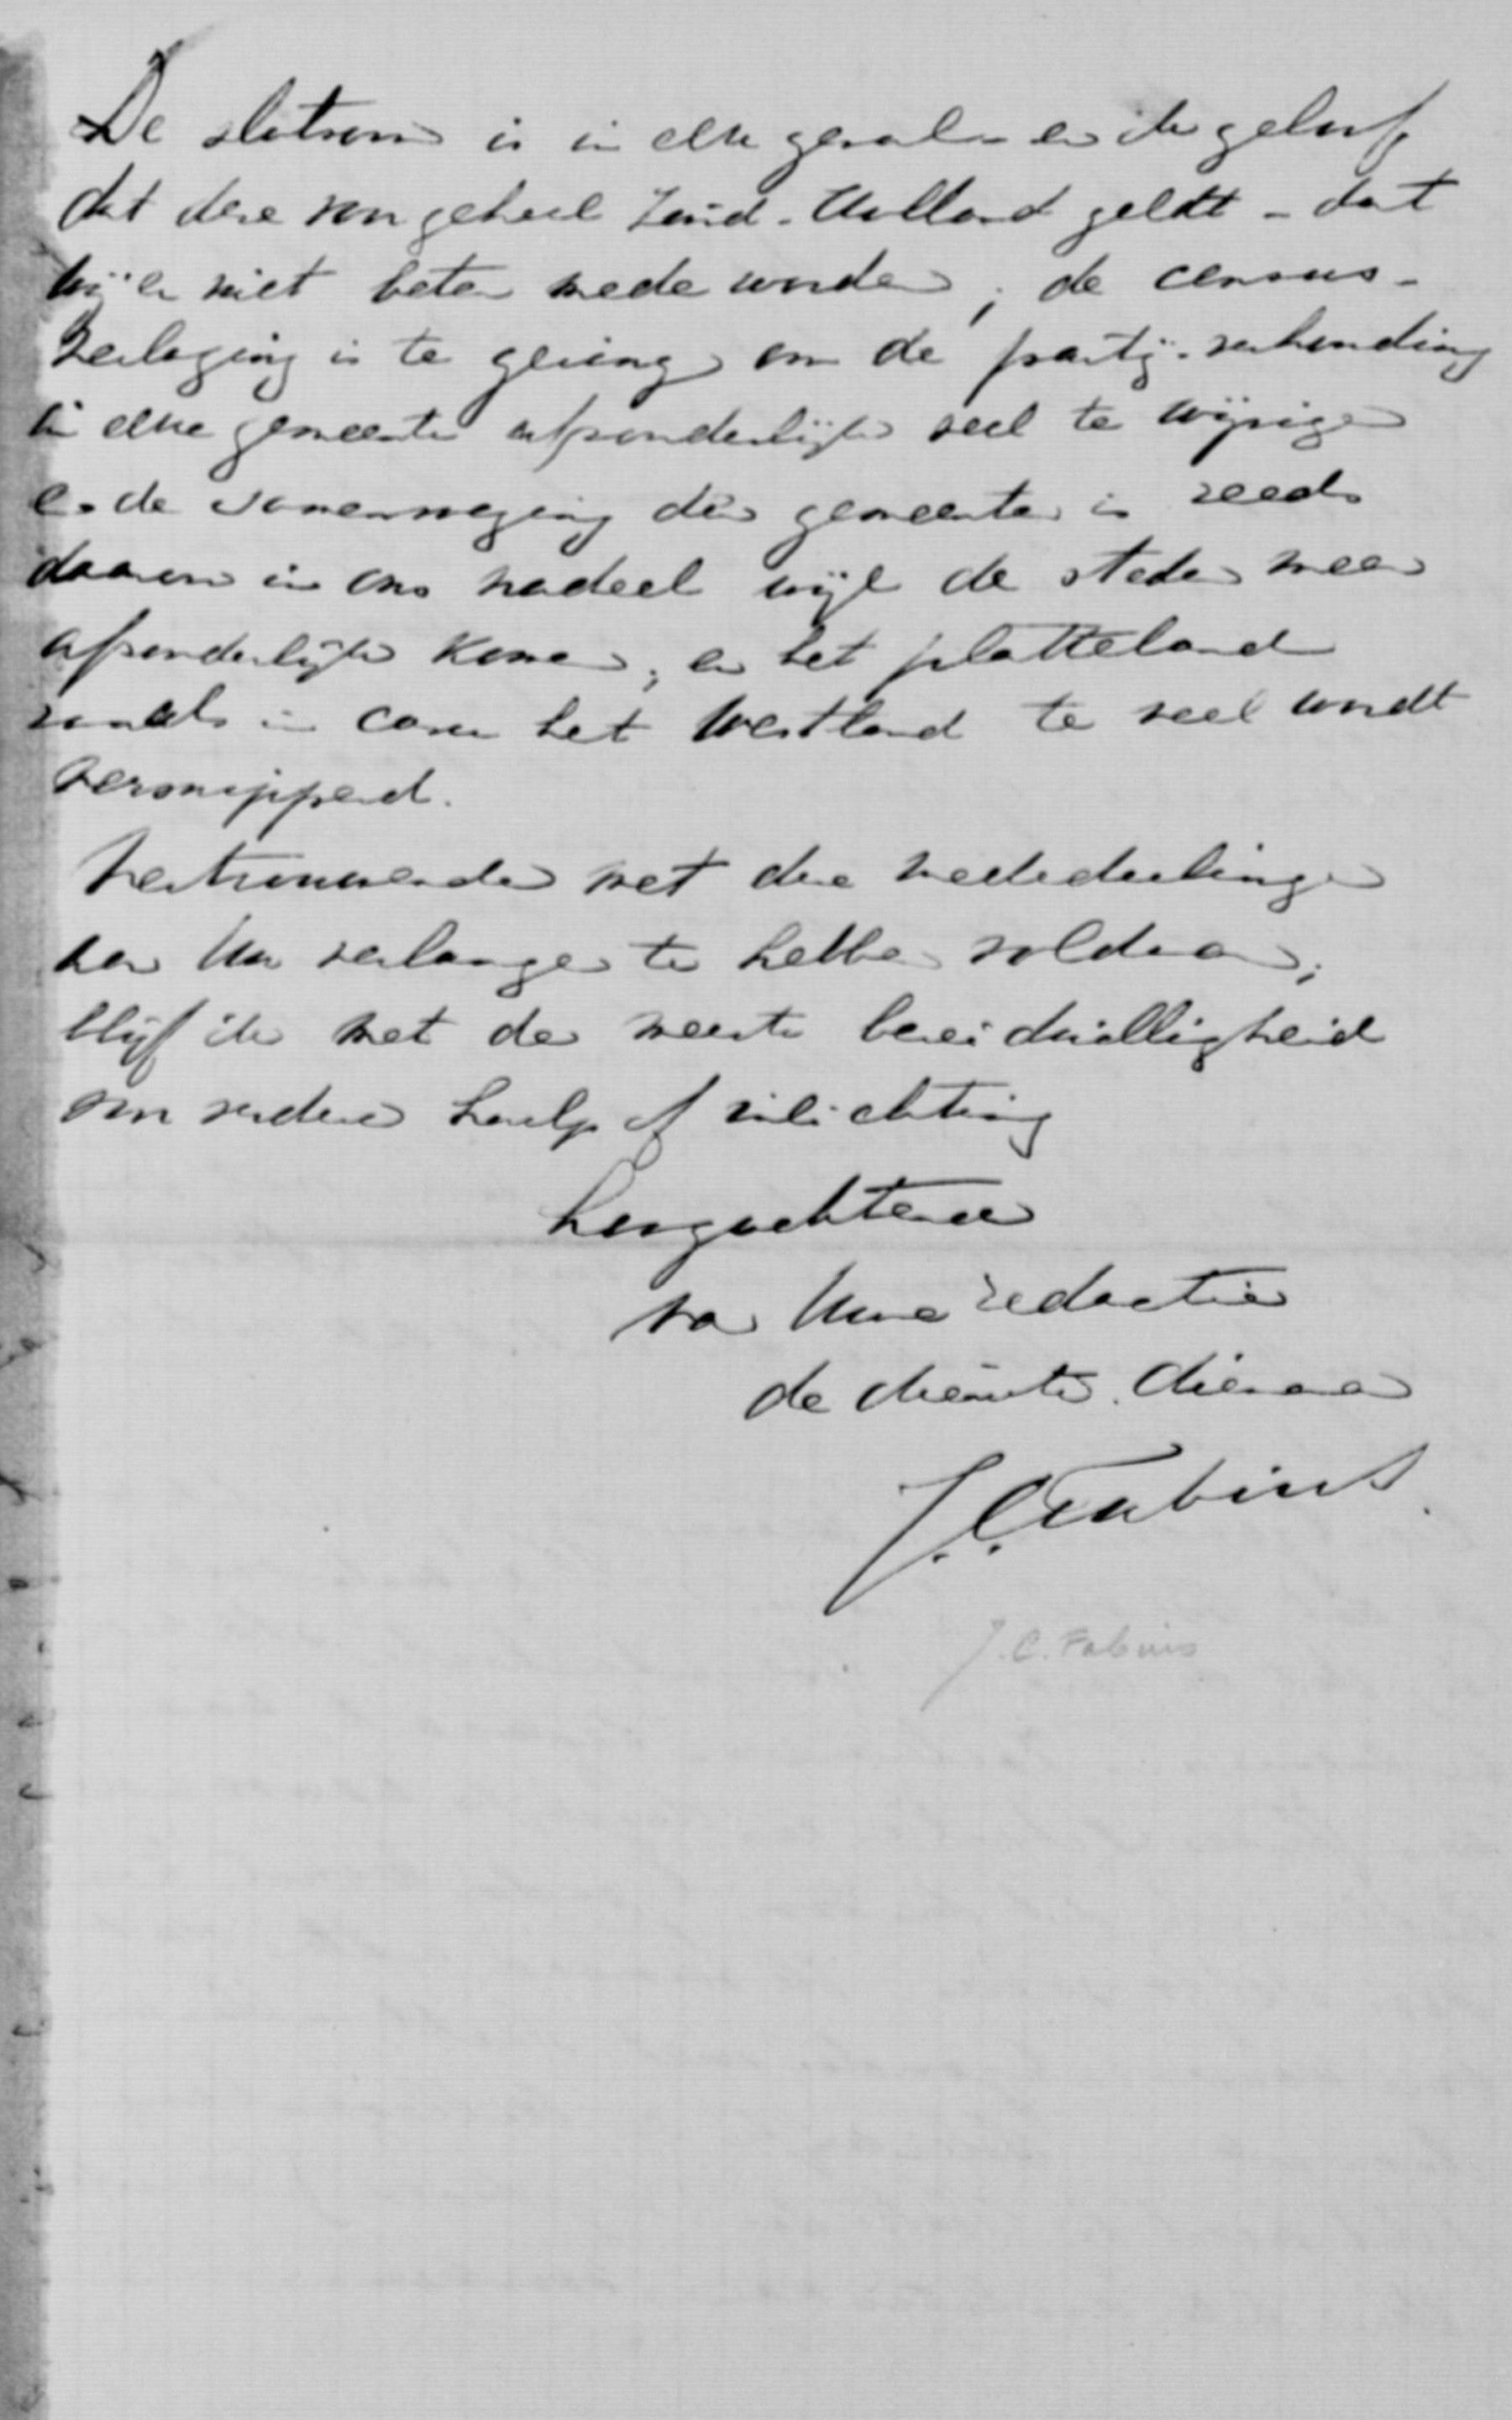 De slotsom is in elk geval - en ik geloof
dat deze van geheel Zuid-Holland geldt - dat
wij er niet beter mede worden; de census-
verlaging is te gering om de partij-verhouding
in elke gemeente afzonderlijk veel te wijzigen
en de samenvoeging der gemeenten is reeds
daarom in ons nadeel wijl de steden meer
afzonderlijk komen; en het platteland
zooals in casu het Westland te veel wordt
versnipperd.
Vertrouwende met deze mededeelingen
aan Uw verlangen te hebben voldaan;
blijf ik met de meeste bereidwilligheid
om verdere hulp of inlichting
hoogachtend
van Uwe redactie
de dienstw. dienaar
J.C. Fabius.
J.C. Fabius